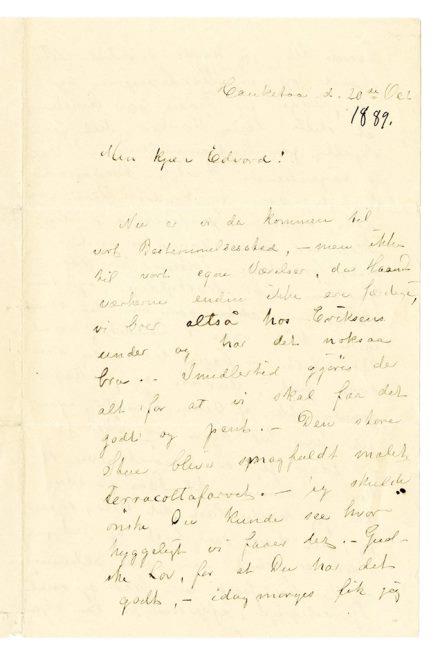 Hauketoa d. 20de Oct
1889.
Min kjære Edvard!
Nu er vi da kommen til
vort Bestemmelsessted, – men ikke
til vort egne Værelser, da Haand-
værkerne endnu ikke ere færdige,
vi boer altså hos Eriksens
under og har det noksaa
bra. – Imidlertid gjøres der
alt for at vi skal faa det
godt og pent. – Den store
Stue bliver smagfuldt malet
Terracottafarvet. – jeg skulde
ønske Du kunde see hvor
hyggeligt vi faaer det. – Gud-
ske Lov, for at Du har det
godt, – idag morges fik jeg